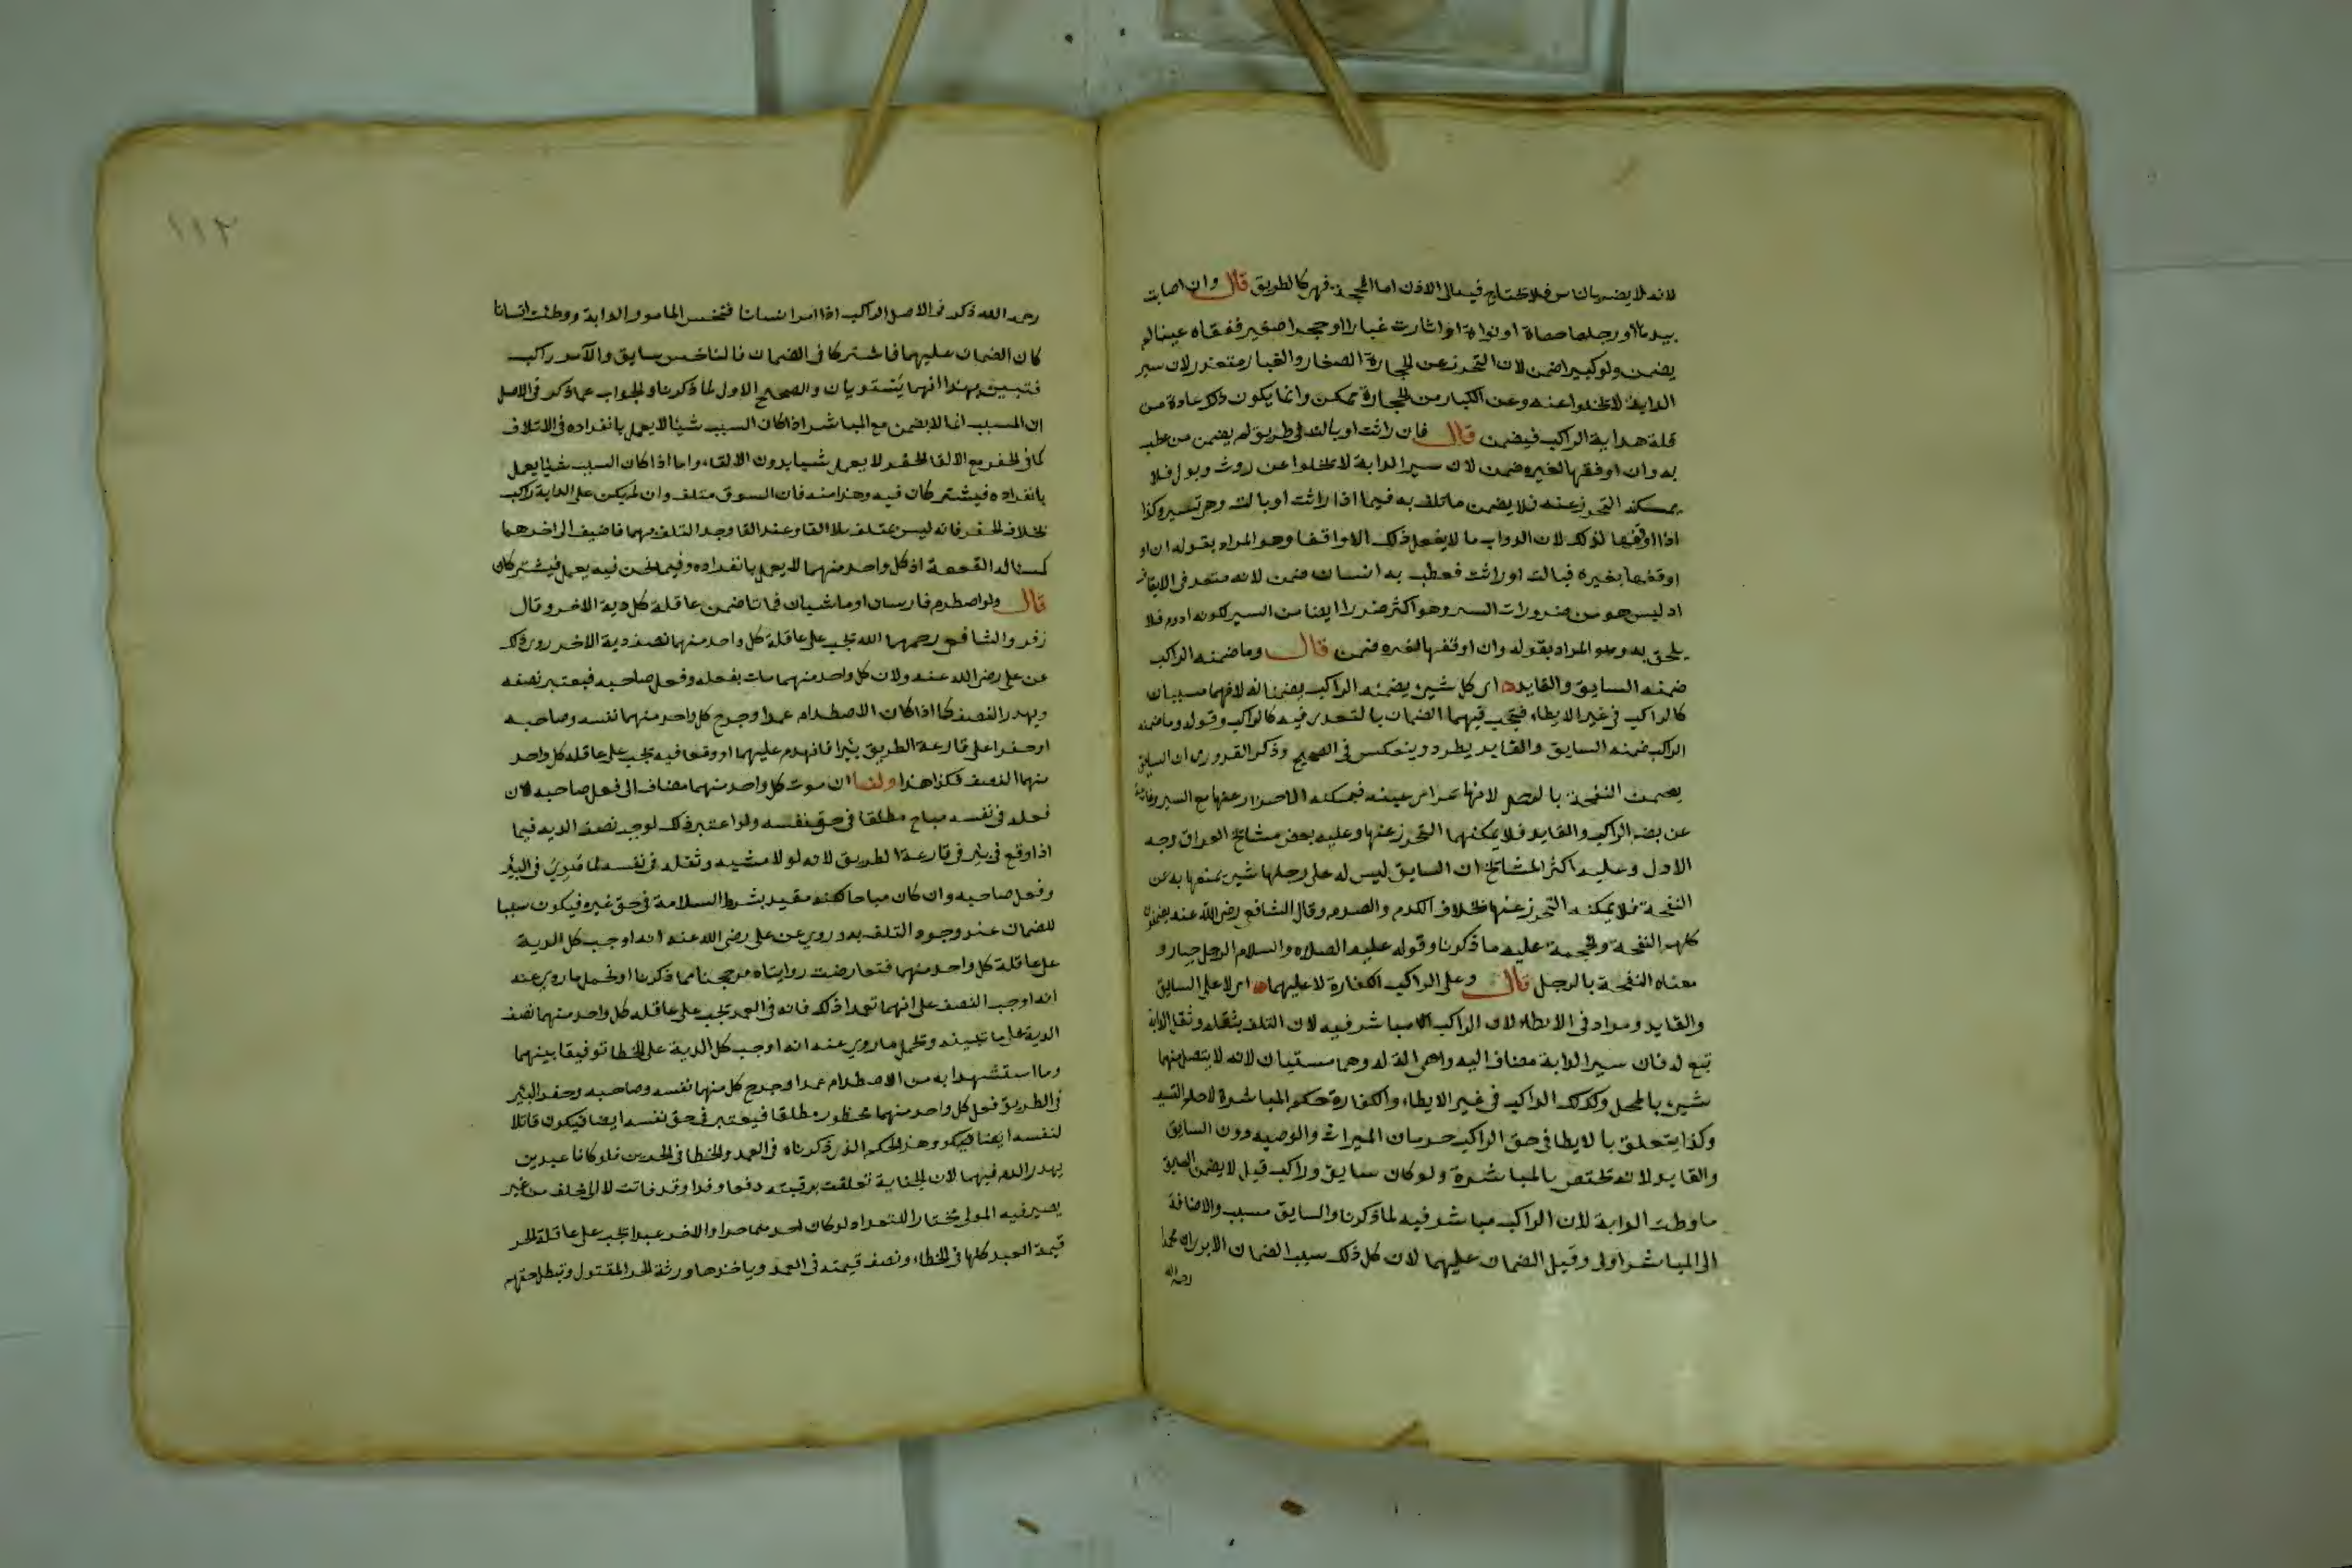 لانه لا يضر بالناس فلا يحتاج فيه الى الاذن اما المحجة فهو كالطريق قال وان اصابت
بيدها او رجلها حصاة او نواة او اثارت غبارا او حجرا صغير ففقاه عينا لم
يضمن ولو كبيرا ضمن لان التحرز عن الحجارة الصغار والغبار متعذر لان سير
الدابة لا يخلوا عنه وعن الكبار من الحجارة ممكن وانما يكون ذلك عادة من
قلة هداية الراكب فيضمن قال فان راثت او بالت في طريق لم يضمن من عطب
به وان اوقفها لغيره ضمن لان سير الدابة لا يخلوا عن روث وبول فلا
يمكنه التحرز عنه فلا يضمن ما تلف به فيما اذا راثت او بالت وهي تسير وكذا
اذا اوقفها لذلك لان الدواب ما لا يفعل ذلك الا واقفا وهو المراد بقوله ان او
اوقفها بغيره فبالت او راثت فعطب به انسان ضمن لانه متعد في الايقاف
اذ ليس هو من ضرورات السير وهو اكثر ضررا ايضا من السير لكونه ادوم فلا
يلحق به وهو المراد بقوله وان اوقفها لغيره ضمن قال وما ضمنه الراكب
ضمنه السايق والقايد اي كل شيء يضمنه الراكب يضمنانه لانهما مسببان
كالراكب في غير الايطاء فيجب فيهما الضمان بالتعدي فيه كالراكب وقوله وما ضمنه
الراكب ضمنه السايق والقايد يطرد وينعكس في الصحيح وذكر القدوري ان السايق
يضمن النفحة بالرجل لانها بمراى عينه فيمكنه الاحتراز عنها مع السير وغائبة
عن بصر الراكب والقايد فلا يمكنهما التحرز عنها وعليه بعض مشائخ العراق وجه
الاول وعليه اكثر المشائخ ان السايق ليس له على رجلها شيء يمنعها به عن
النفحة فلا يمكنه التحرز عنها بخلاف الكدم والصدم وقال الشافعي رضي الله عنه يضمنون
كلهم النفحة والحجة عليه ما ذكرنا وقوله عليه الصلاه والسلام الرجل جبار و
معناه النفحة بالرجل قال وعلى الراكب الكفارة لا عليهما اي لا على السايق
والقايد ومراده في الايطاء لان الراكب مباشر فيه لان التلف بثقله وثقل الدابة
تبع له فان سير الدابة مضاف اليه وهي الة له وهما مسببان لانه لا يتصل منهما
شيء بالمحل وكذلك الراكب في غير الايطاء والكفارة حكم المباشرة لا حكم التسبيب
وكذا يتعلق بالايطا في حق الراكب حرمان الميراث والوصيه دون السايق
والقايد لانه تختص بالمباشرة ولو كان سايق وراكب قيل لا يضمن السايق
ما وطئت الدابة لان الراكب مباشر فيه لما ذكرنا والسايق مسبب والاضافة
الى المباشر اولى وقيل الضمان عليهما لان كل ذلك سبب الضمان الا يرى ان محمدا
رحمه الله
١١٢
رحمه الله ذكر في الاصل الراكب اذا امر انسانا فنخس المامور الدابة ووطئت انسانا
كان الضمان عليهما فاشتركا في الضمان فالناخس سايق والآمر راكب
فتبين بهذا انهما يستويان والصحيح الاول لما ذكرنا والجواب عما ذكر في الاصل
ان المسبب انما لا يضمن مع المباشر اذا كان السبب شيئا لا يعمل بانفراده في الاتلاف
كما في الحفر مع الالقا الحفر لا يعمل شيا بدون الالقاء واما اذا كان السبب شيئا يعمل
بانفراده فيشتركان فيه وهذا منه فان السوق متلف وان لم يكن على الدابة راكب
بخلاف الحفر فانه ليس بمتلف بلا القا وعند القا وجد التلف بهما فاضيف الى اخرهما
كمسالة القمعة اذ كل واحد منهما لا يعمل بانفراده وفيما نحن فيه يعمل فيشتركان
قال ولو اصطدم فارسان او ماشيان فماتا ضمن عاقلة كل دية الاخر وقال
زفر والشافعي رحمهما الله تجب على عاقلة كل واحد منهما نصف دية الاخر روي ذلك
عن علي رضي الله عنه ولان كل واحد منهما مات بفعله وفعل صاحبه فيعتبر نصفه
ويهدر النصف كما اذا كان الاصطدام عمدا وجرح كل واحد منهما نفسه وصاحبه
او حفرا على قارعة الطريق بئرا فانهدم عليهما او وقعا فيه تجب على عاقله كل واحد
منهما النصف فكذا هذا ولنا ان موت كل واحد منهما مضاف الى فعل صاحبه لان
فعله في نفسه مباح مطلقا في حق نفسه ولو اعتبر ذلك لوجد نصف الديه فيما
اذا وقع في بئر في قارعة الطريق لانه لولا مشيه وثقله في نفسه لما هوى في البئر
وفعل صاحبه وان كان مباحا لكنه مقيد بشرط السلامة في حق غيره فيكون سببا
للضمان عند وجود التلف به وروي عن علي رضي الله عنه انه اوجب كل الدية
على عاقلة كل واحد منهما فتعارضت روايتاه فرجحنا بما ذكرنا او نحمل ما روي عنه
انه اوجب النصف على انهما تعمدا ذلك فانه في العمد تجب على عاقله كل واحد منهما نصف
الدية على ما نبينه ونحمل ما روي عنه انه اوجب كل الدية على الخطا توفيقا بينهما
وما استشهدا به من الاصطدام عمدا وجرح كل منهما نفسه وصاحبه وحفر البئر
في الطريق فعل كل واحد منهما محظور مطلقا فيعتبر في حق نفسه ايضا فيكون قاتلا
لنفسه ايضا وهذا الحكم الذي ذكرناه في العمد والخطا في الحرين فلو كانا عبدين
يهدر الدم فيهما لان الجناية تعلقت برقبته دفعا وفدا وقد فاتت لا الى خلف من غير
يصير فيه المولى مختارا للفدا ولو كان احدهما حرا والاخر عبدا تجب على عاقلة الحر
قيمة العبد كلها في الخطاء ونصف قيمته في العمد وياخذها ورثة الحر المقتول وتبطل حقهم